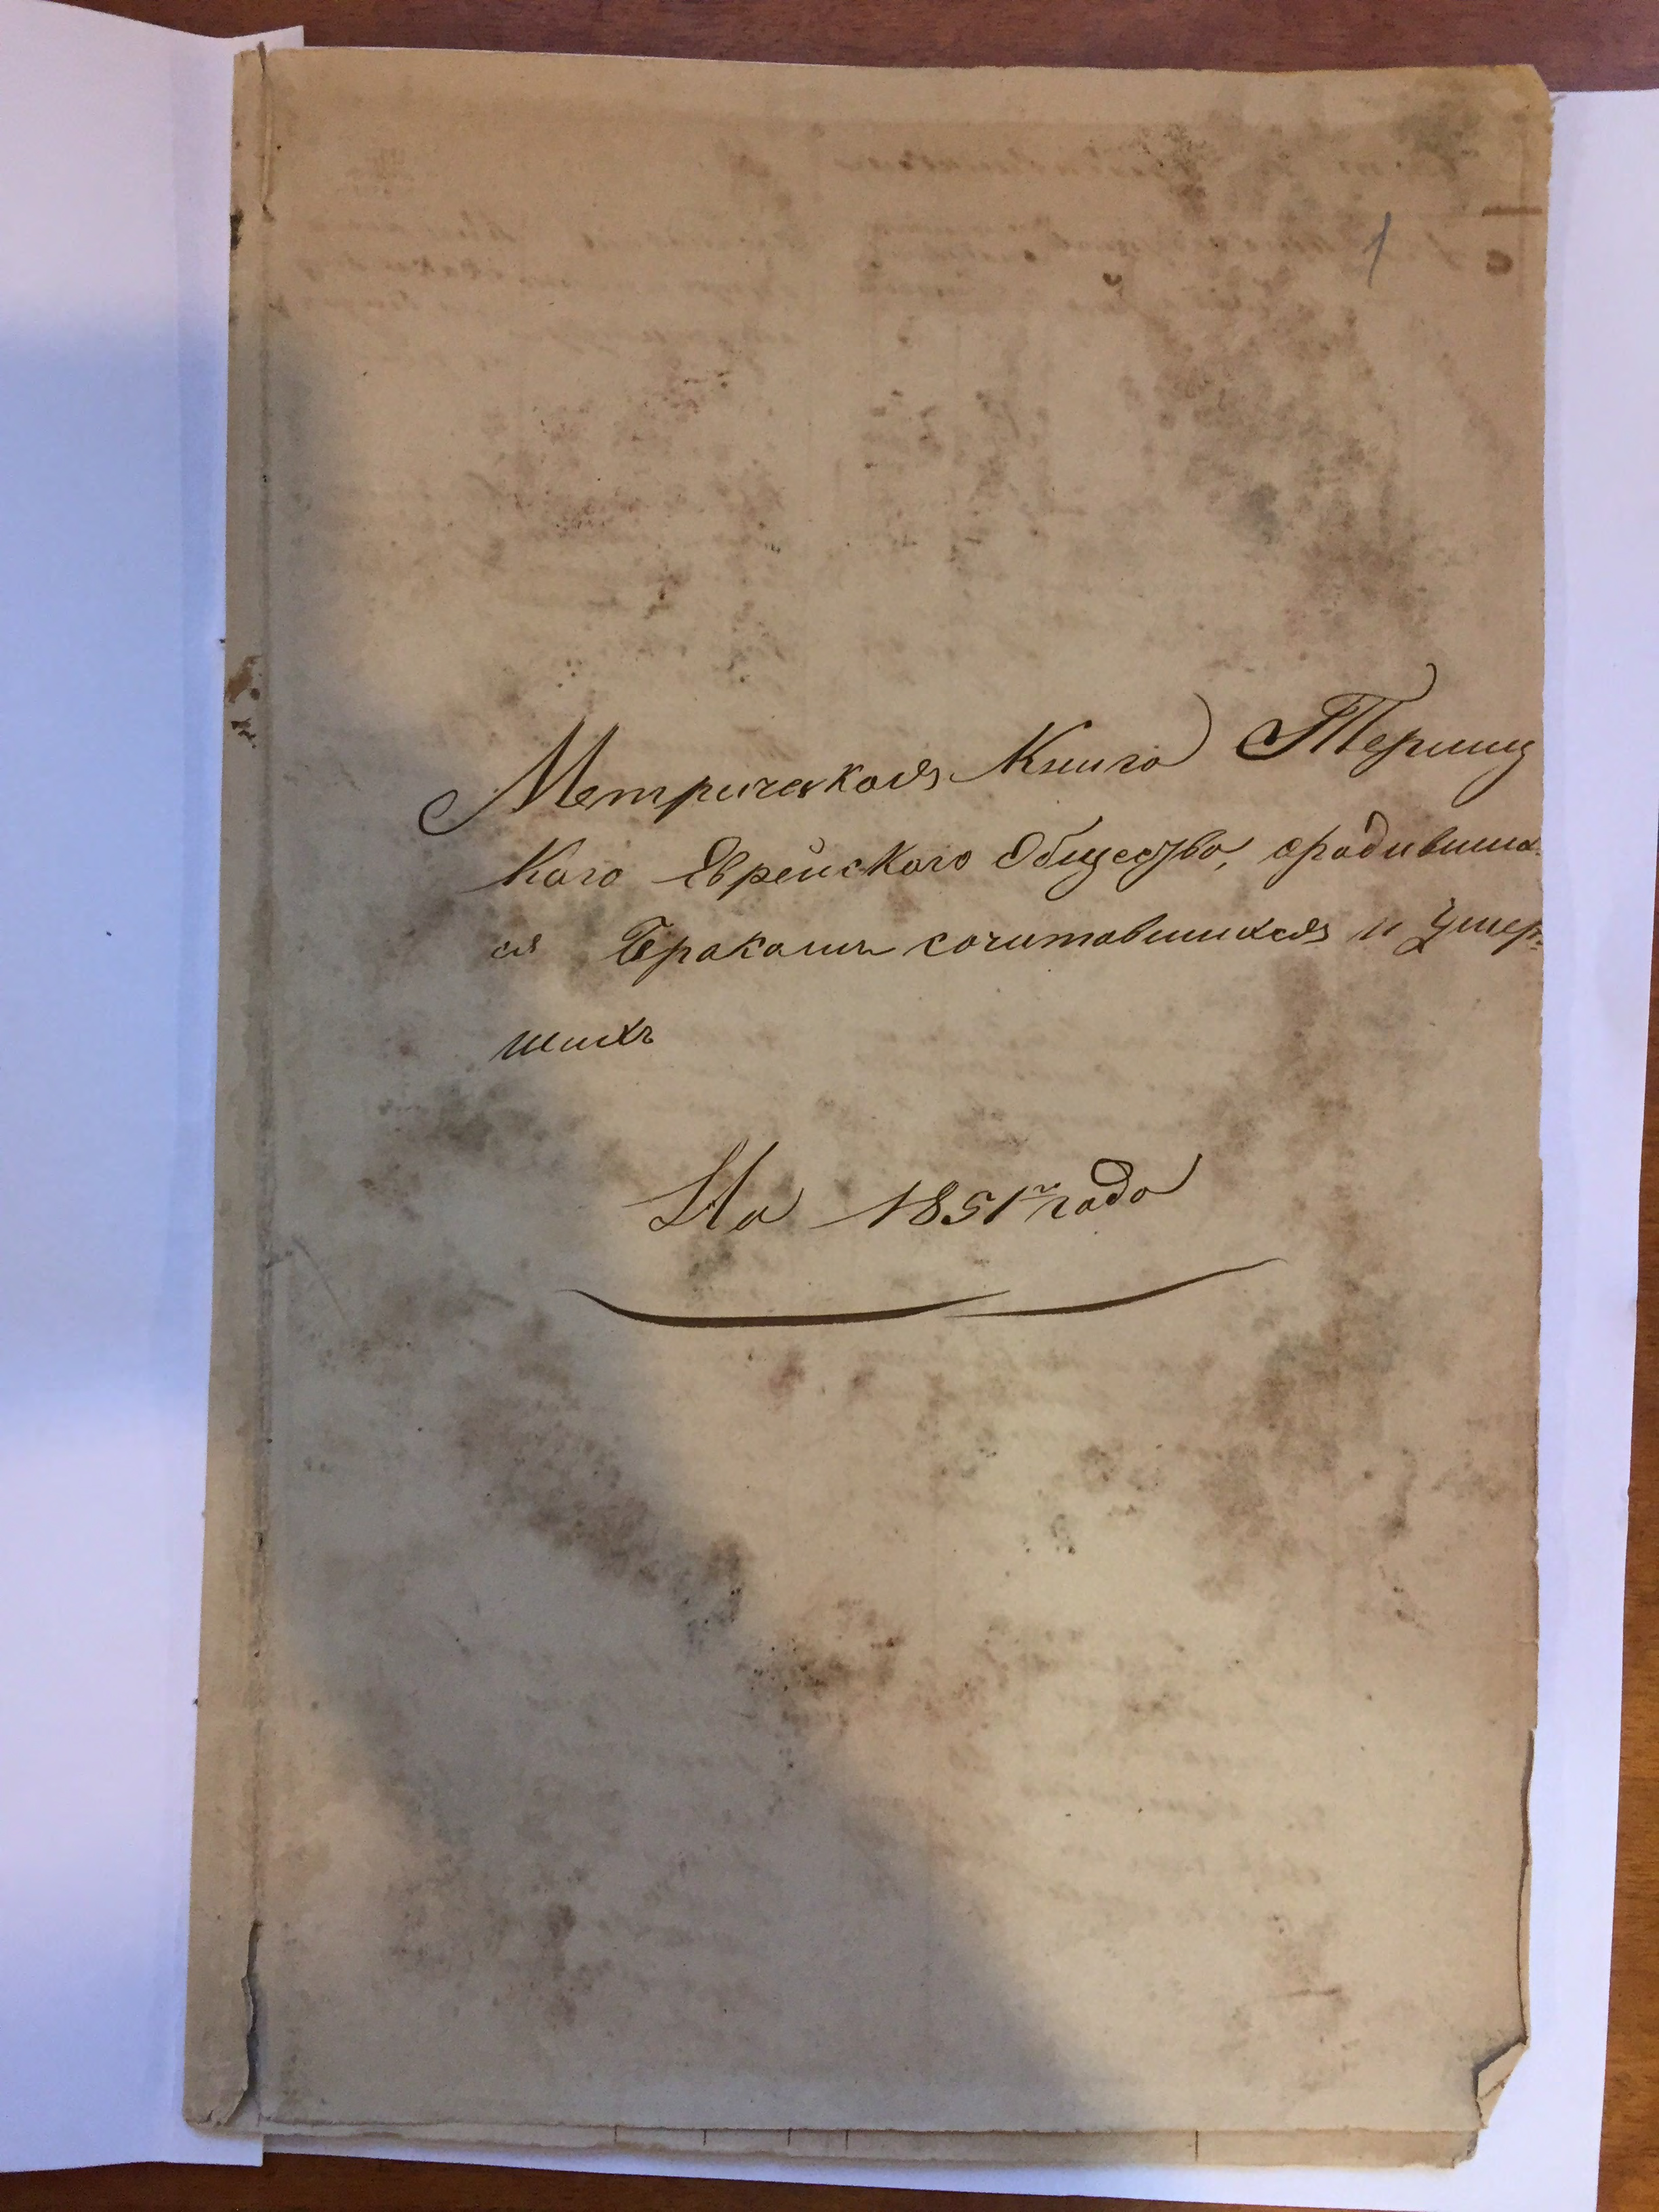 1
Метрическая Книга Терниц
Кого Еврейского Общества, ородивших
ся Бракомъ сочитавшихся и Умер=
шихъ
На 1851й года